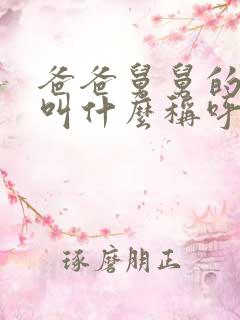 爸爸舅舅的
叫什麼稱呼
琢磨朋正